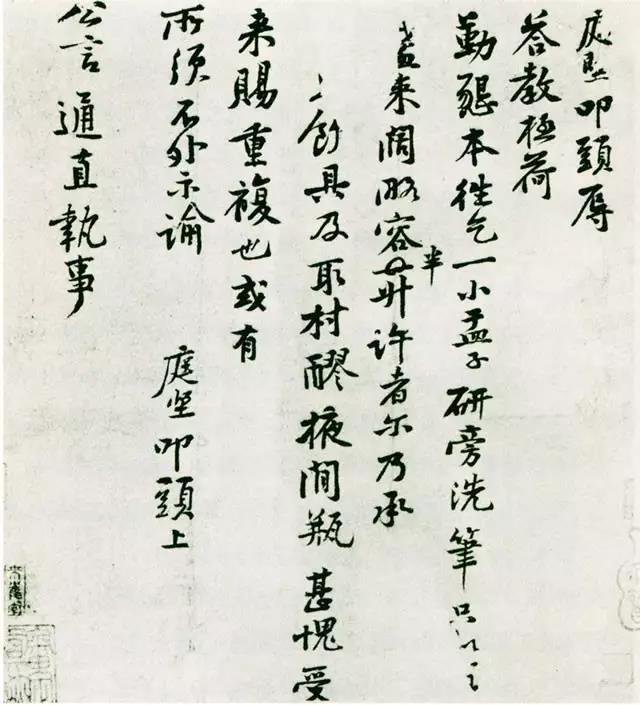 庭坚叩頭辱
答教極荷
勤懇本徃乞一小盂子研旁洗筆只
盖来闊略容半升許者尔乃承
具及取村醪掖間瓶甚愧受
来賜重複也或有
所須不外示諭
庭坚叩頭上
公言通直執事